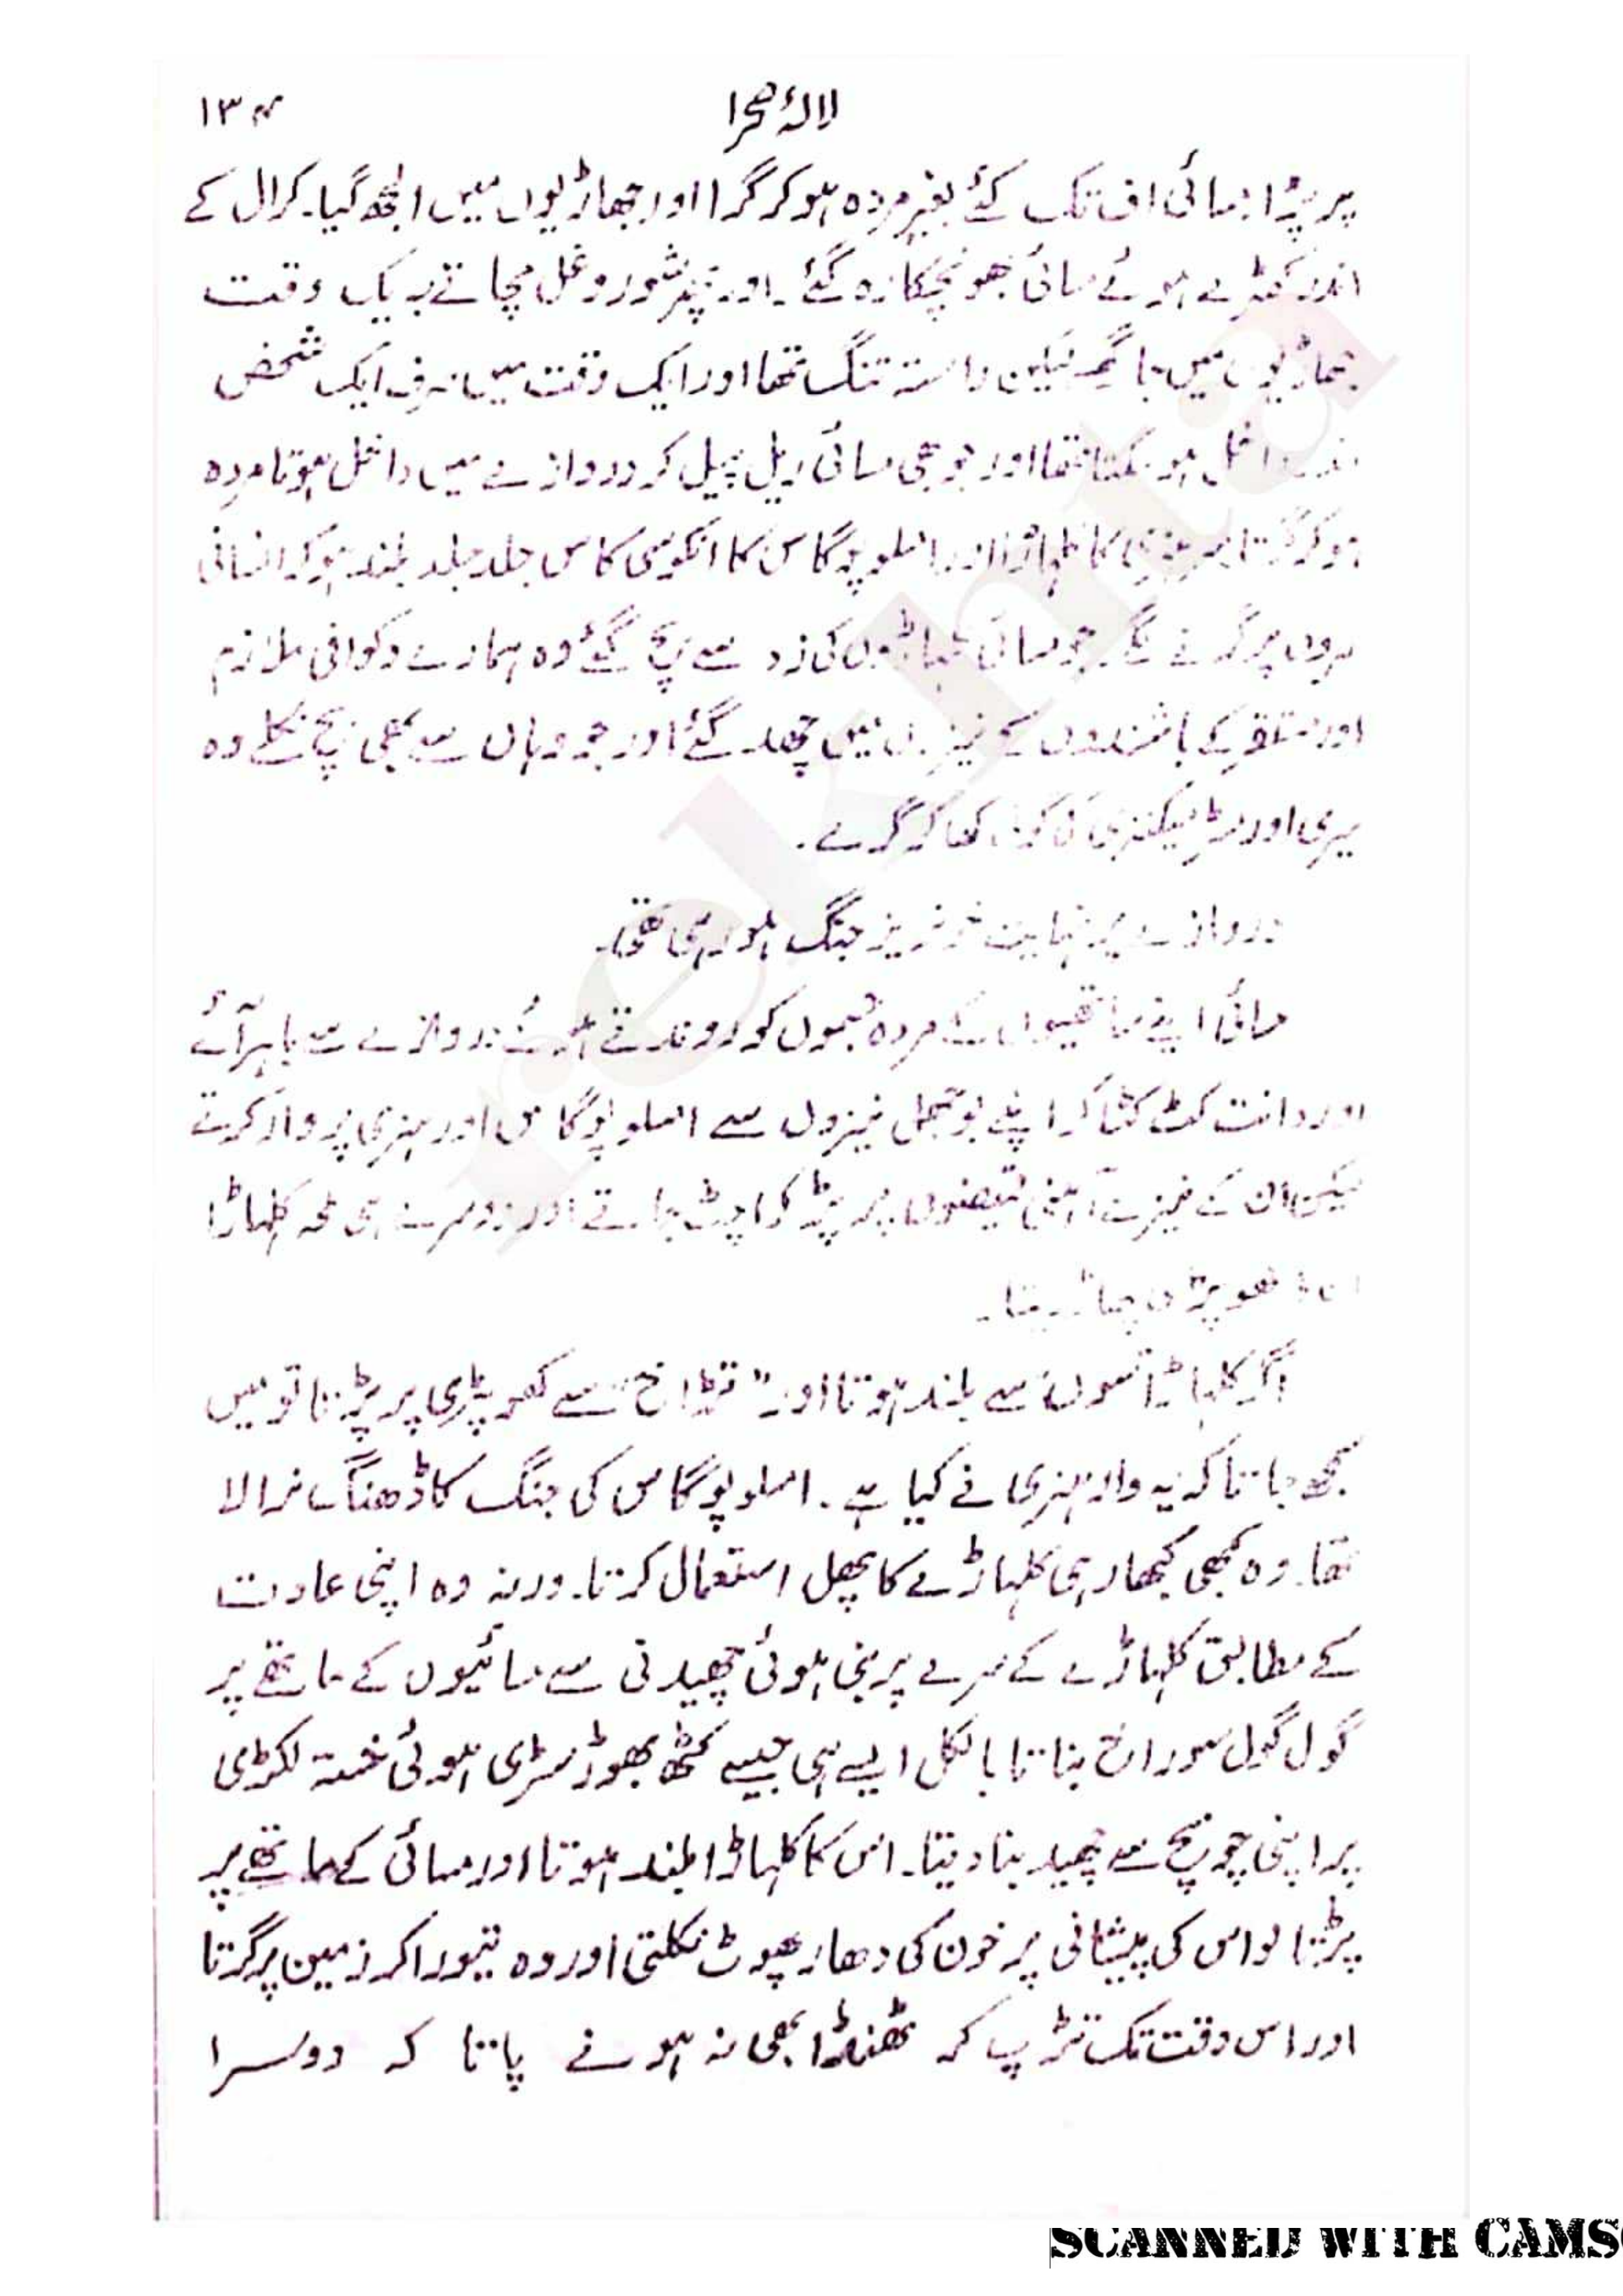 لالۂ صحرا ۱۳۴
پر پڑا۔ مسائی اف تک کئے بغیر مردہ ہو کر گرا اور جھاڑیوں میں الجھ گیا۔ کرال کے
اندر کھڑے ہوئے مسائی بھونچکا رہ گئے۔ اور پھر شور و غل مچاتے بہ یک وقت
جھاڑیوں میں جا گھسے لیکن راستہ تنگ تھا اور ایک وقت میں صرف ایک شخص
داخل ہو سکتا تھا اور جو بھی مسائی ریل پیل کر دروازے میں داخل ہوتا مردہ
ہو کر گرتا۔ ہنری کا کلہاڑا اور املوپوگاس کا انکوسی کاس جلد جلد بلند ہو کر انسانی
سروں پر گرنے لگے۔ جو مسائی کلہاڑوں کی زد سے بچ گئے وہ ہمارے وکوافی ملازم
اور مستقر کے باشندوں کے نیزوں میں چھد گئے اور جو وہاں سے بھی بچ نکلے وہ
میری اور مسٹر میکنزی کی گولی کھا کر گرے۔
دروازے پر نہایت خونریز جنگ ہو رہی تھی۔
مسائی اپنے ساتھیوں کے مردہ جسموں کو روندتے ہوئے دروازے سے باہر آئے
اور دانت کٹ کٹا کر اپنے بوجھل نیزوں سے املوپوگاس اور ہنری پر وار کرتے
لیکن ان کے نیزے آہنی قمیصوں پر پڑ کر اچٹ جاتے اور دوسرے ہی لمحہ کلہاڑا
ان کی کھوپڑی پھاڑ دیتا۔
اگر کلہاڑا "سوں" سے بلند ہوتا اور "تڑاخ" سے کھوپڑی پر پڑتا تو میں
سمجھ جاتا کہ یہ وار ہنری نے کیا ہے۔ املوپوگاس کی جنگ کا ڈھنگ نرالا
تھا۔ وہ کبھی کبھار ہی کلہاڑے کا پھل استعمال کرتا۔ ورنہ وہ اپنی عادت
کے مطابق کلہاڑے کے سرے پر بنی ہوئی چھیدنی سے مسائیوں کے ماتھے پر
گول گول سوراخ بناتا بالکل ایسے ہی جیسے کٹھ پھوڑ سڑی ہوئی خستہ لکڑی
پر اپنی چونچ سے چھید بنا دیتا۔ اس کا کلہاڑا بلند ہوتا اور مسائی کے ماتھے پر
پڑتا تو اس کی پیشانی پر خون کی دھار پھوٹ نکلتی اور وہ تیورا کر زمین پر گرتا
اور اس وقت تک تڑپ کر ٹھنڈا بھی نہ ہونے پاتا کہ دوسرا
rekhta
SCANNED WITH CAMS